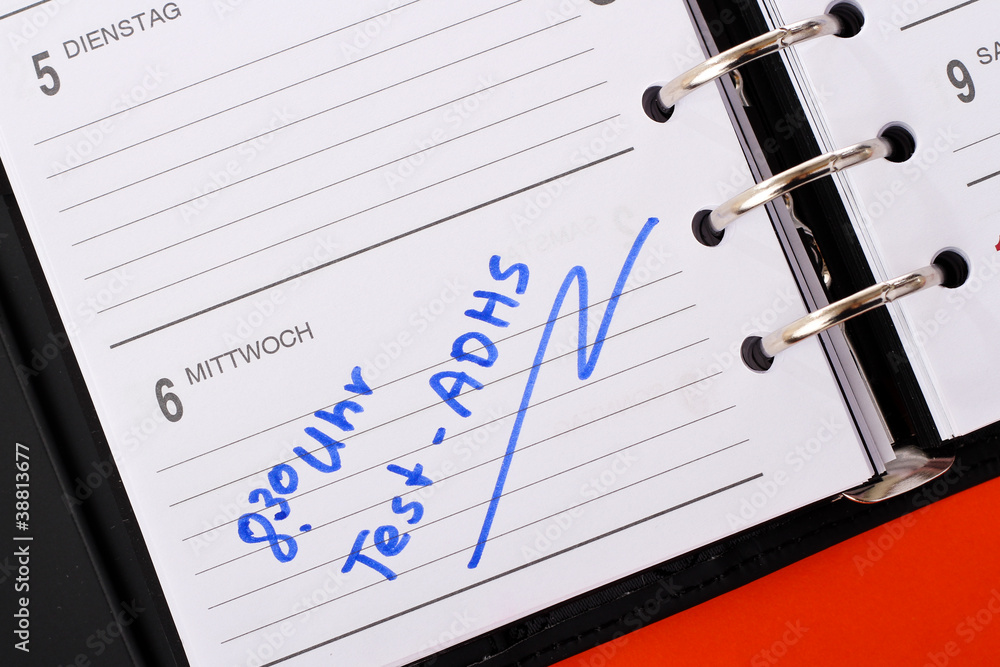 5 DIENSTAG
6 MITTWOCH
8.30 Uhr
Test - ADHS
9 SA
Adobe Stock | #38813677